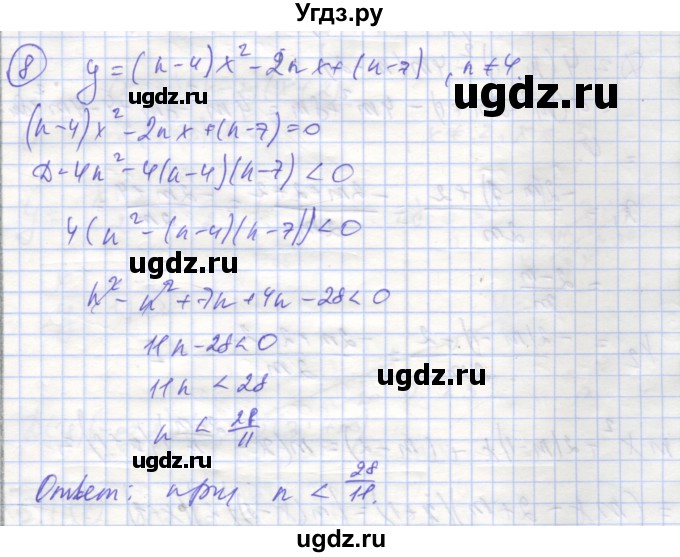 Угдз.ру
8 y = (n-4)x² - 2nx + (n-7), n ≠ 4.
ugdz.ru ugdz.ru
(n-4)x² - 2nx + (n-7) = 0
D = 4n² - 4(n-4)(n-7) < 0
4(n² - (n-4)(n-7)) < 0
ugdz.ru
n² - n² + 7n + 4n - 28 < 0
11n - 28 < 0
ugdz.ru
11n < 28
n < 28/11
ugdz.ru
Ответ: при n < 28/11.
ugdz.ru